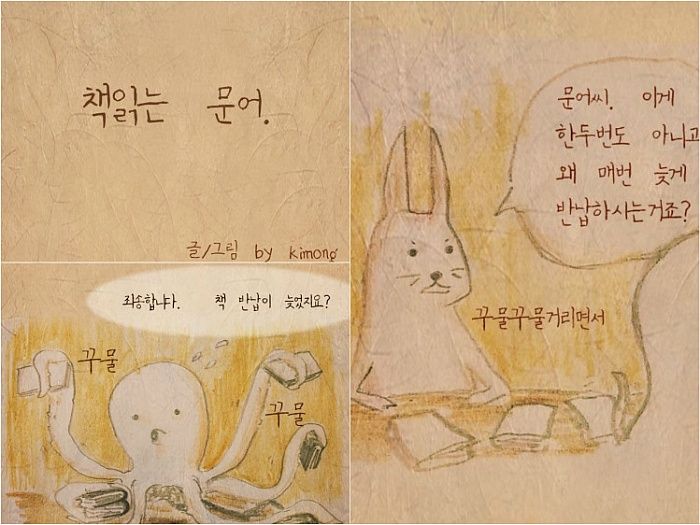 책읽는 문어.
글/그림 by kimong
죄송합니다. 책 반납이 늦었지요?
꾸물
꾸물
문어씨. 이게
한두번도 아니고
왜 매번 늦게
반납하시는거죠?
꾸물꾸물거리면서